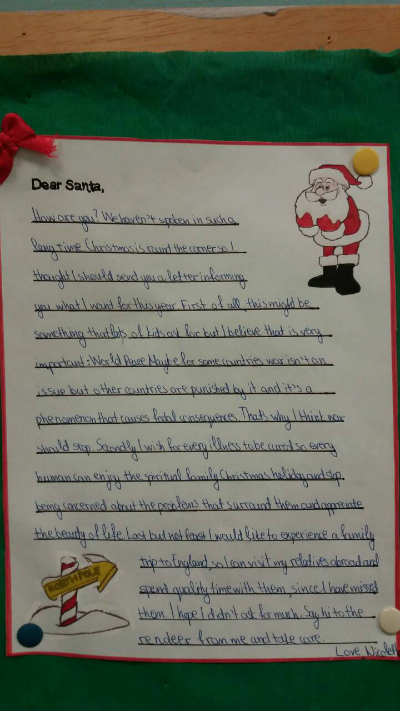 Dear Santa,
How are you? We haven't spoken in such a
long time. Christmas is round the corner so I
thought I should send you a letter informing
you what I want for this year. First of all, this might be
something that lots of kids ask for but I believe that is very
important: World Peace. Maybe for some countries war isn't an
issue but other countries are punished by it and it's a
phenomenon that causes fatal consequences. That's why I think war
should stop. Secondly I wish for every illness to be cured so every
human can enjoy the spiritual family Christmas holiday and stop
being concerned about the problems that surround them and appreciate
the beauty of life. Last but not least I would like to experience a family
trip to England, so I can visit my relatives abroad and
spend quality time with them, since I have missed
them. I hope I didn't ask for much. Say hi to the
reindeer from me and take care.
Love, Nicolet
NORTH POLE